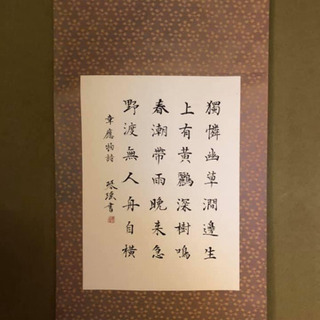 獨憐幽草澗邊生
上有黃鸝深樹鳴
春潮帶雨晚来急
野渡無人舟自橫
韋應物詩